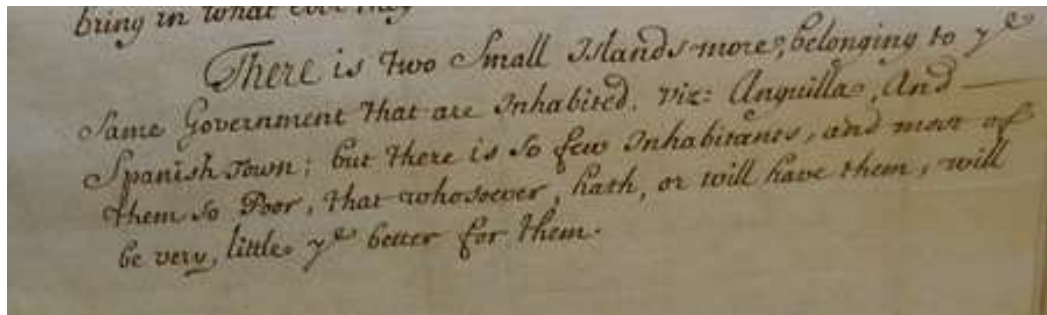 bring in what ever they
There is two Small Islands more, belonging to yᵉ
Same Government that are Inhabited. viz: Anguilla, And —
Spanish Town; but there is so few Inhabitants, and most of
them so Poor, that whosoever, hath, or will have them, will
be very, little yᵉ better for them.